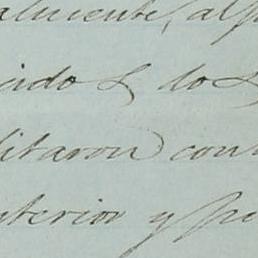 almente, al
cido & do &
litaron con
nterior y p